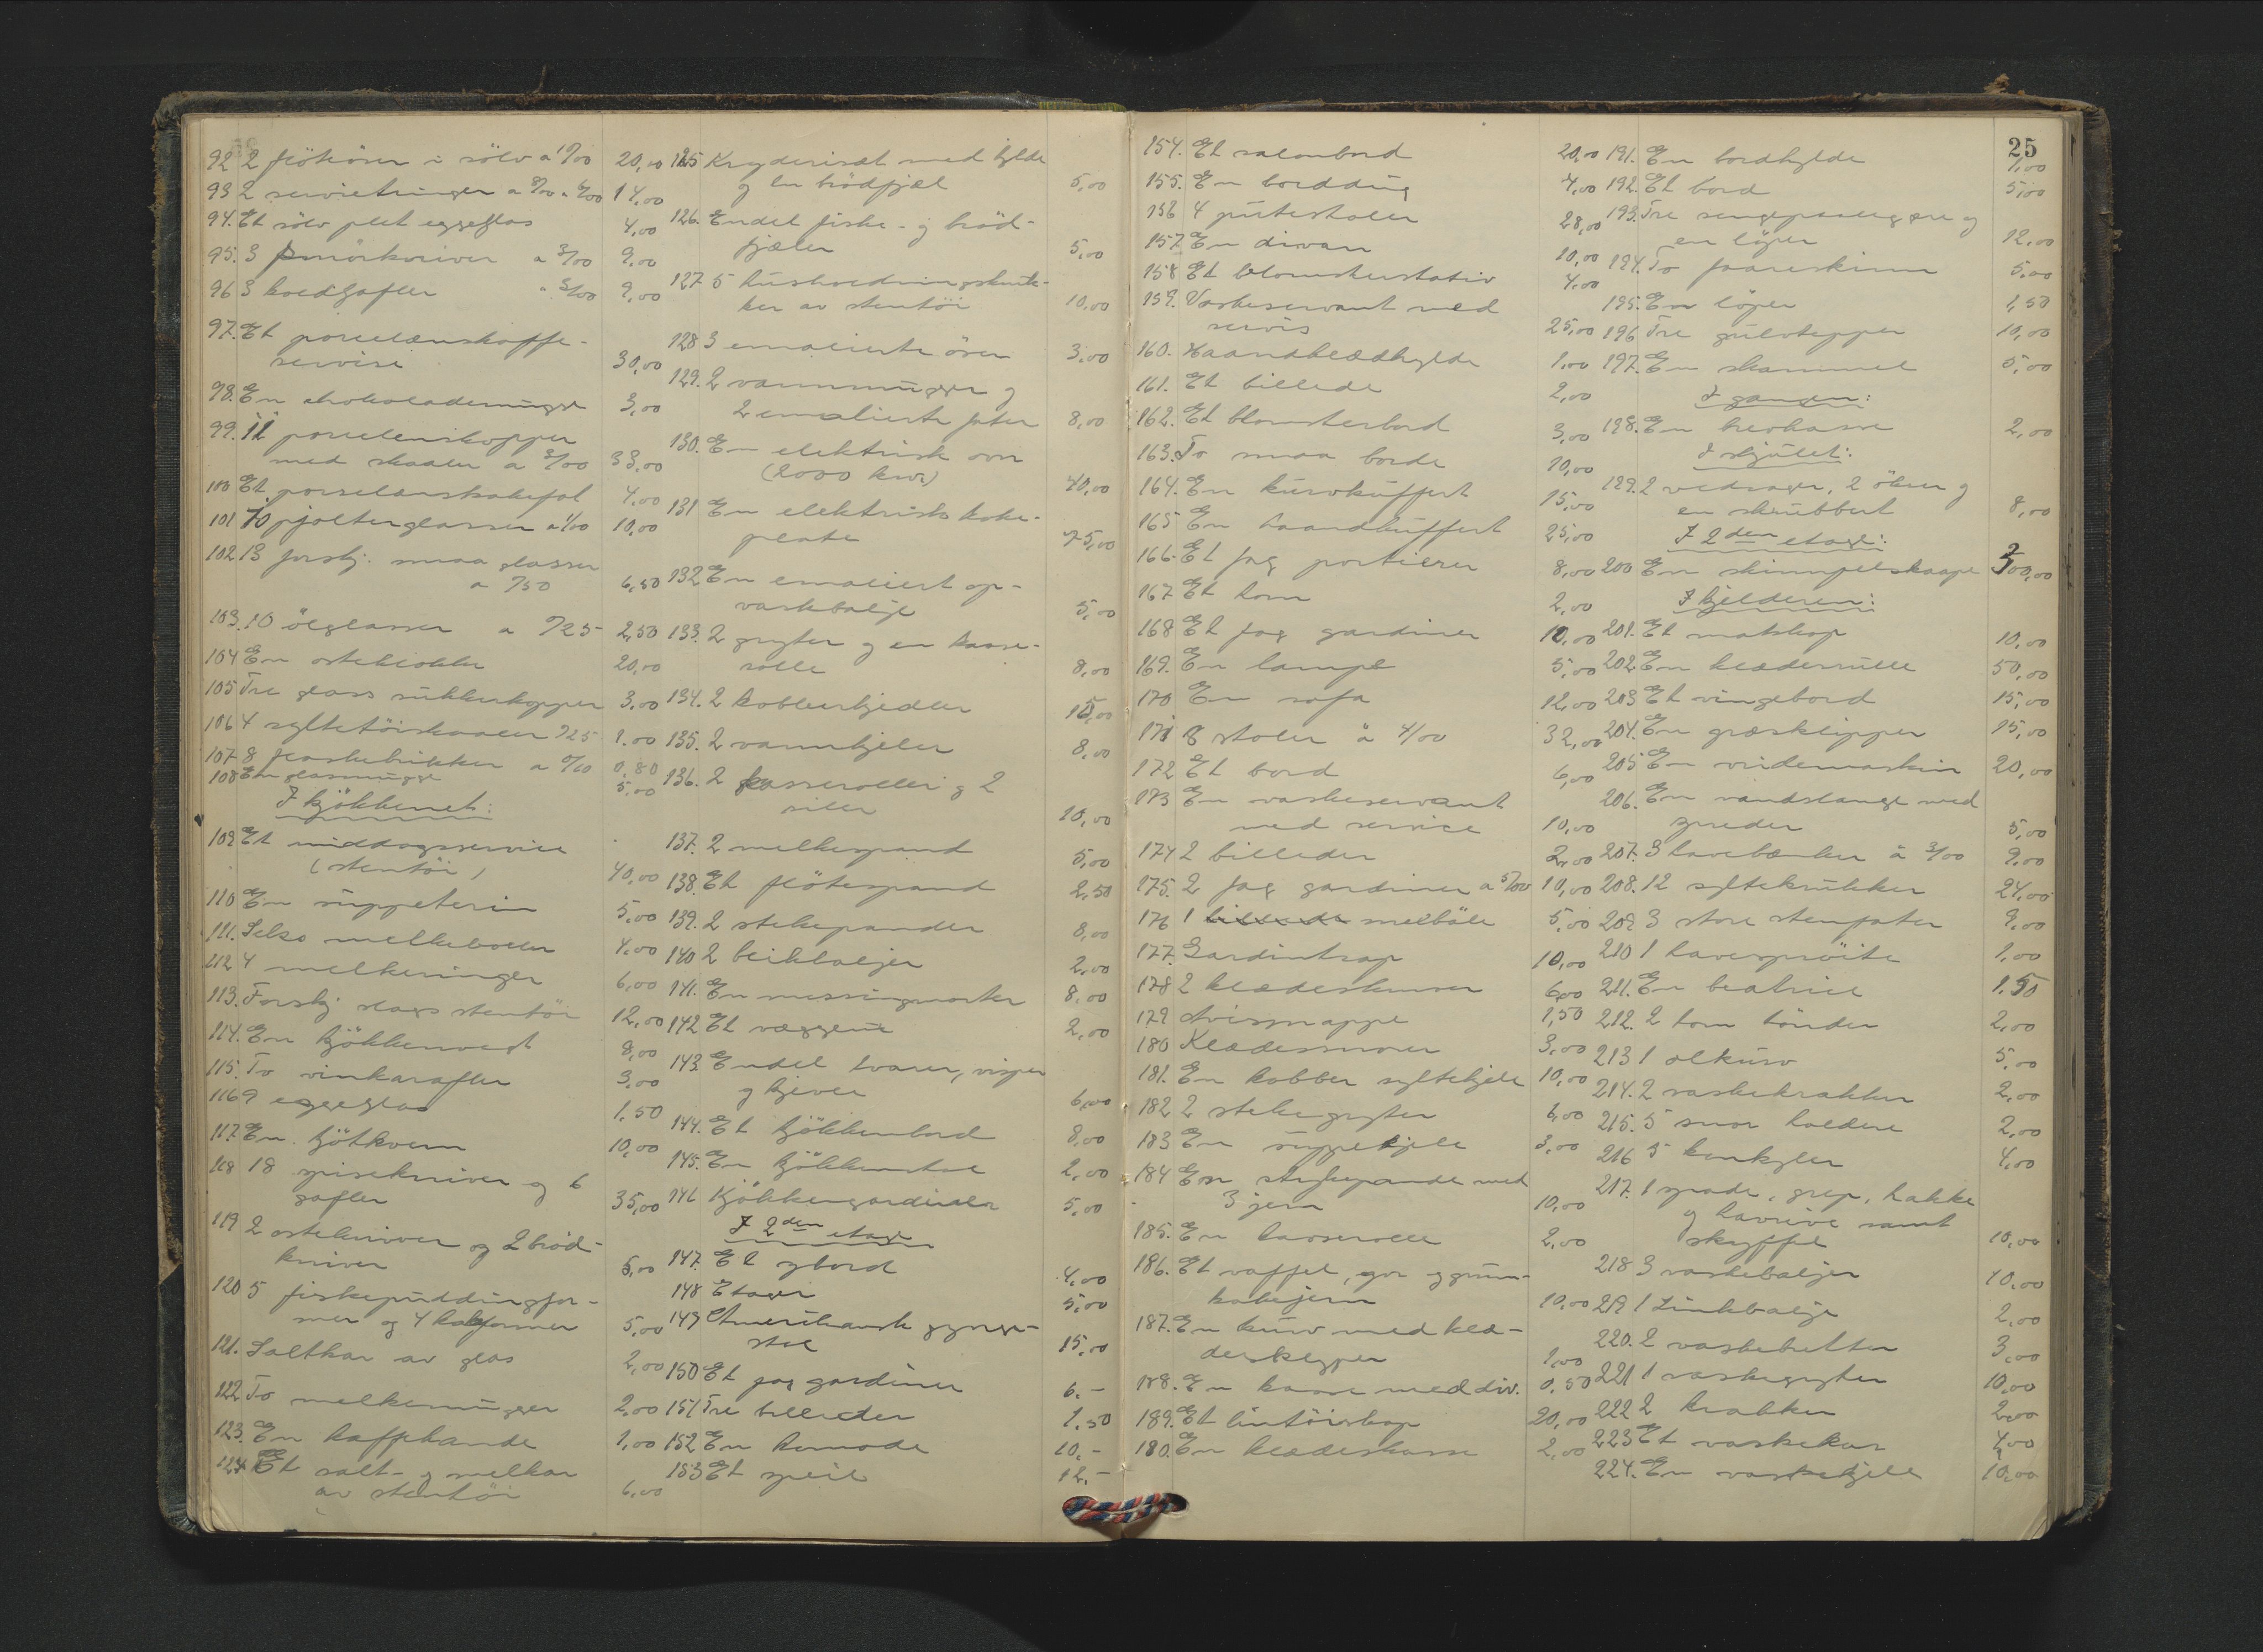 92 2 flöteöser i sölv a 10/00 20,00
93 2 servietringer a 8/00 a 6/00 14,00
94. Et sölv plet eggeglas 4,00
95. 3 smörkniver a 3/00 9,00
96 3 koldgafler a 3/00 9,00
97. Et porcelænskaffe-
servise 30,00
98. En chokolademugge 3,00
99. 11 porcelenskopper
med skaaler a 3/00 33,00
100 Et porselænskakefat 4,00
101 10 pjolterglasser a 1/00 10,00
102 13 forskj. smaa glasser
a 0/50 6,50
103. 10 ölglasser a 0/25 2,50
104 En osteklokke 20,00
105 Tre glass sukkerkopper 3,00
106 4 syltetöiskaaler 0/25 1.00
107 8 flaskebrikker a 0/10 0,80
108 En glasmugge 5,00
I kjökkenet:
109 Et middagsservice
(stentöi) 40,00
110 En suppeterin 5,00
111. Seks melkeboller 4,00
112 4 melkeringer 6,00
113. Forskj slags stentöi 12,00
114. En kjökkenvegt 8,00
115. To vinkarafler 3,00
116 9 eggeglas 1,50
117. En kjötkvern 10,00
118 18 spisekniver og 6
gafler 35,00
119 2 ostekniver og 2 bröd-
kniver 5,00
120 5 fiskepuddingfor-
mer og 4 kakformer 5,00
121. Saltkar av glas 2,00
122. To melkemugger 2,00
123. En kaffekande 1,00
124 Et salt- og melkar
av stentöi 6,00
125 Kryderisæt med hylde
og en brödfjæl 5,00
126. Endel fiske- og bröd-
fjæler 5,00
127 5 husholdningskruk-
ker av stentöi 10,00
128 3 emalierte öser 3,00
129. 2 vannmugger og
2 emalierte fater 8,00
130. En elektrisk ovn
(2000 kw.) 40,00
131 En elektrisk koke-
plate 75,00
132 En emaliert op-
vaskbalje 5,00
133. 2 gryter og en kasse-
rolle 8,00
134. 2 kobberkjedler 15,00
135. 2 vannkjeler 8,00
136. 2 kasseroller og 2
siler 10,00
137. 2 melkespand 5,00
138. Et flötespand 2,50
139. 2 stekepander 8,00
140 2 blikbaljer 2,00
141. En messingmorter 8,00
142 Et væggeur 2,00
143. Endel tvarer, visper
og skjeer 6,00
144. Et kjökkenbord 8,00
145. En kjökkenstol 2,00
146 Kjökkengardiner 5,00
I 2den etage
147. Et sybord 4,00
148 Etager 5,00
149 Amerikansk gynge-
stol 15,00
150 Et fag gardiner 6.-
151 Tre billeder 1,50
152 En komode 10.-
153 Et speil 12.-
154. Et salonbord 20,00
155. En borddug 4,00
156 4 putestoler 28,00
157 En divan 10,00
158 Et blomsterstativ 4,00
159. Vaskeservant med
servis 25,00
160. Haandklædhylde 1,00
161. Et billede 2,00
162. Et blomsterbord 3,00
163. To smaa borde 10,00
164. En kurvkuffert 15,00
165 En haandkuffert 25,00
166. Et fag portierer 8,00
167 Et horn 2,00
168 Et fag gardiner 10,00
169. En lampe 5,00
170 En sofa 12,00
171 8 stoler à 4/00 32,00
172 Et bord 6,00
173 En vaskeservant
med service 10,00
174 2 billeder 2,00
175. 2 fag gardiner a 5/00 10,00
176 1 billede melböle 5,00
177. Gardintrap 10,00
178 2 klædeskurver 6,00
179 Avismappe 1,50
180 Klædessnorer 3,00
181. En kobber syltekjele 10,00
182 2 stekegryter 6,00
183 En suppekjele 3,00
184 En strykepande med
3 jern 10,00
185. En kasserolle 2,00
186. Et vaffel, gor og grum-
kakejern 10,00
187. En kurv med klæ-
desklyper 1,00
188. En kasse med div. 0,50
189. Et lintöiskap 20,00
180. En klædeskasse 2,00
25
191. En bordhylde 1,00
192. Et bord 5,00
193. Tre sengepaaleggere og
en löper 12,00
194. To faareskinn 5,00
195. En löper 1,50
196 Tre gulvtepper 10,00
197. En skammel 5,00
I gangen:
198. En brevkasse 2,00
I skjulet:
199. 2 vedsager, 2 ökser og
en skrubbert 8,00
I 2den etage:
200 En skinnpelskaape 200,00
I kjelderen:
201. Et matskap 10,00
202 En klæderulle 50,00
203 Et vingebord 15,00
204. En græsklipper 15,00
205 En vridemaskin 20,00
206. En vandslange med
spreder 5,00
207. 3 havebænker à 3/00 9,00
208. 12 syltekrukker 24,00
209 3 store stenfater 9,00
210 1 havesprøite 1,00
211. En beatrice 1.50
212. 2 tom tönder 2,00
213 1 ølkurv 5,00
214. 2 vaskekrakker 2,00
215. 5 snor holdere 2,00
216 5 konkyler 4,00
217. 1 spade, grep, hakke
og haverive samt
skyffel 10,00
218 3 vaskebaljer 10,00
219 1 Sinkbalje 2,00
220. 2 vaskebøtter 3,00
221 1 vaskegryter 10,00
222 2 krakker 2,00
223 Et vaskekar 4,00
224. En vaskekjele 10,00